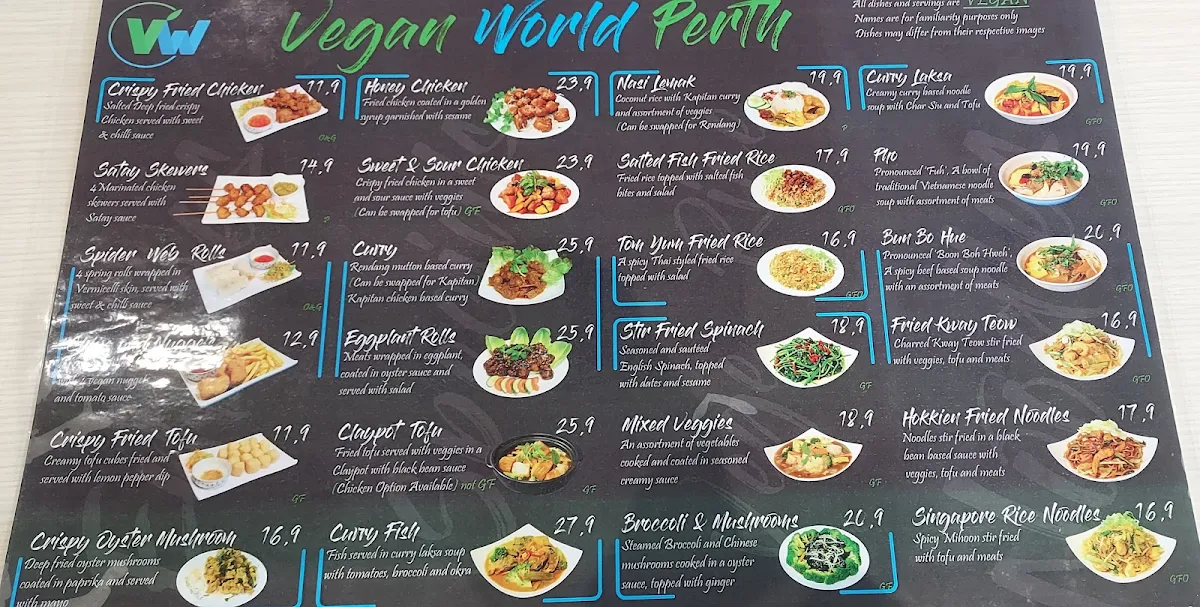 VW
Vegan World Perth
All dishes and servings are VEGAN
Names are for familiarity purposes only
Dishes may differ from their respective images
Crispy Fried Chicken 11,9
Salted Deep fried crispy
Chicken served with sweet
& chilli sauce
O&G
Satay Skewers 14,9
4 Marinated chicken
skewers served with
Satay sauce
P
Spider Web Rolls 11,9
4 spring rolls wrapped in
Vermicelli skin, served with
sweet & chilli sauce
O&G
12,9
vegan nugget
and tomato sauce
Crispy Fried Tofu 11,9
Creamy tofu cubes fried and
served with lemon pepper dip
GF
Crispy Oyster Mushroom 16,9
Deep fried oyster mushrooms
coated in paprika and served
with mayo
Honey Chicken 23,9
Fried chicken coated in a golden
syrup garnished with sesame
Sweet & Sour Chicken 23,9
Crispy fried chicken in a sweet
and sour sauce with veggies
(Can be swapped for tofu) GF
Curry 25,9
Rendang mutton based curry
(Can be swapped for Kapitan)
Kapitan chicken based curry
Eggplant Rolls 25,9
Meats wrapped in eggplant,
coated in oyster sauce and
served with salad
Claypot Tofu 25,9
Fried tofu served with veggies in a
Claypot with black bean sauce
(Chicken Option Available) not GF
GF
Curry Fish 27,9
Fish served in curry laksa soup
with tomatoes, broccoli and okra
Nasi Lemak 19,9
Coconut rice with Kapitan curry
and assortment of veggies
(Can be swapped for Rendang)
P
Salted Fish Fried Rice 17,9
Fried rice topped with salted fish
bites and salad
GFO
Tom Yum Fried Rice 16,9
A spicy Thai styled fried rice
topped with salad
GFO
Stir Fried Spinach 18,9
Seasoned and sauteed
English Spinach, topped
with dates and sesame
GF
Mixed Veggies 18,9
An assortment of vegetables
cooked and coated in seasoned
creamy sauce
GF
Broccoli & Mushrooms 20,9
Steamed Broccoli and Chinese
mushrooms cooked in a oyster
sauce, topped with ginger
GF
Curry Laksa 19,9
Creamy curry based noodle
soup with Char Siu and Tofu
GFO
Pho 19,9
Pronounced 'Fuh', A bowl of
traditional Vietnamese noodle
soup with assortment of meats
GFO
Bun Bo Hue 20,9
Pronounced 'Boon Boh Hweh',
A spicy beef based soup noodle
with an assortment of meats
GFO
Fried Kway Teow 16,9
Charred Kway Teow stir fried
with veggies, tofu and meats
GFO
Hokkien Fried Noodles 17,9
Noodles stir fried in a black
bean based sauce with
veggies, tofu and meats
Singapore Rice Noodles 16,9
Spicy Mihoon stir fried
with tofu and meats
GFO